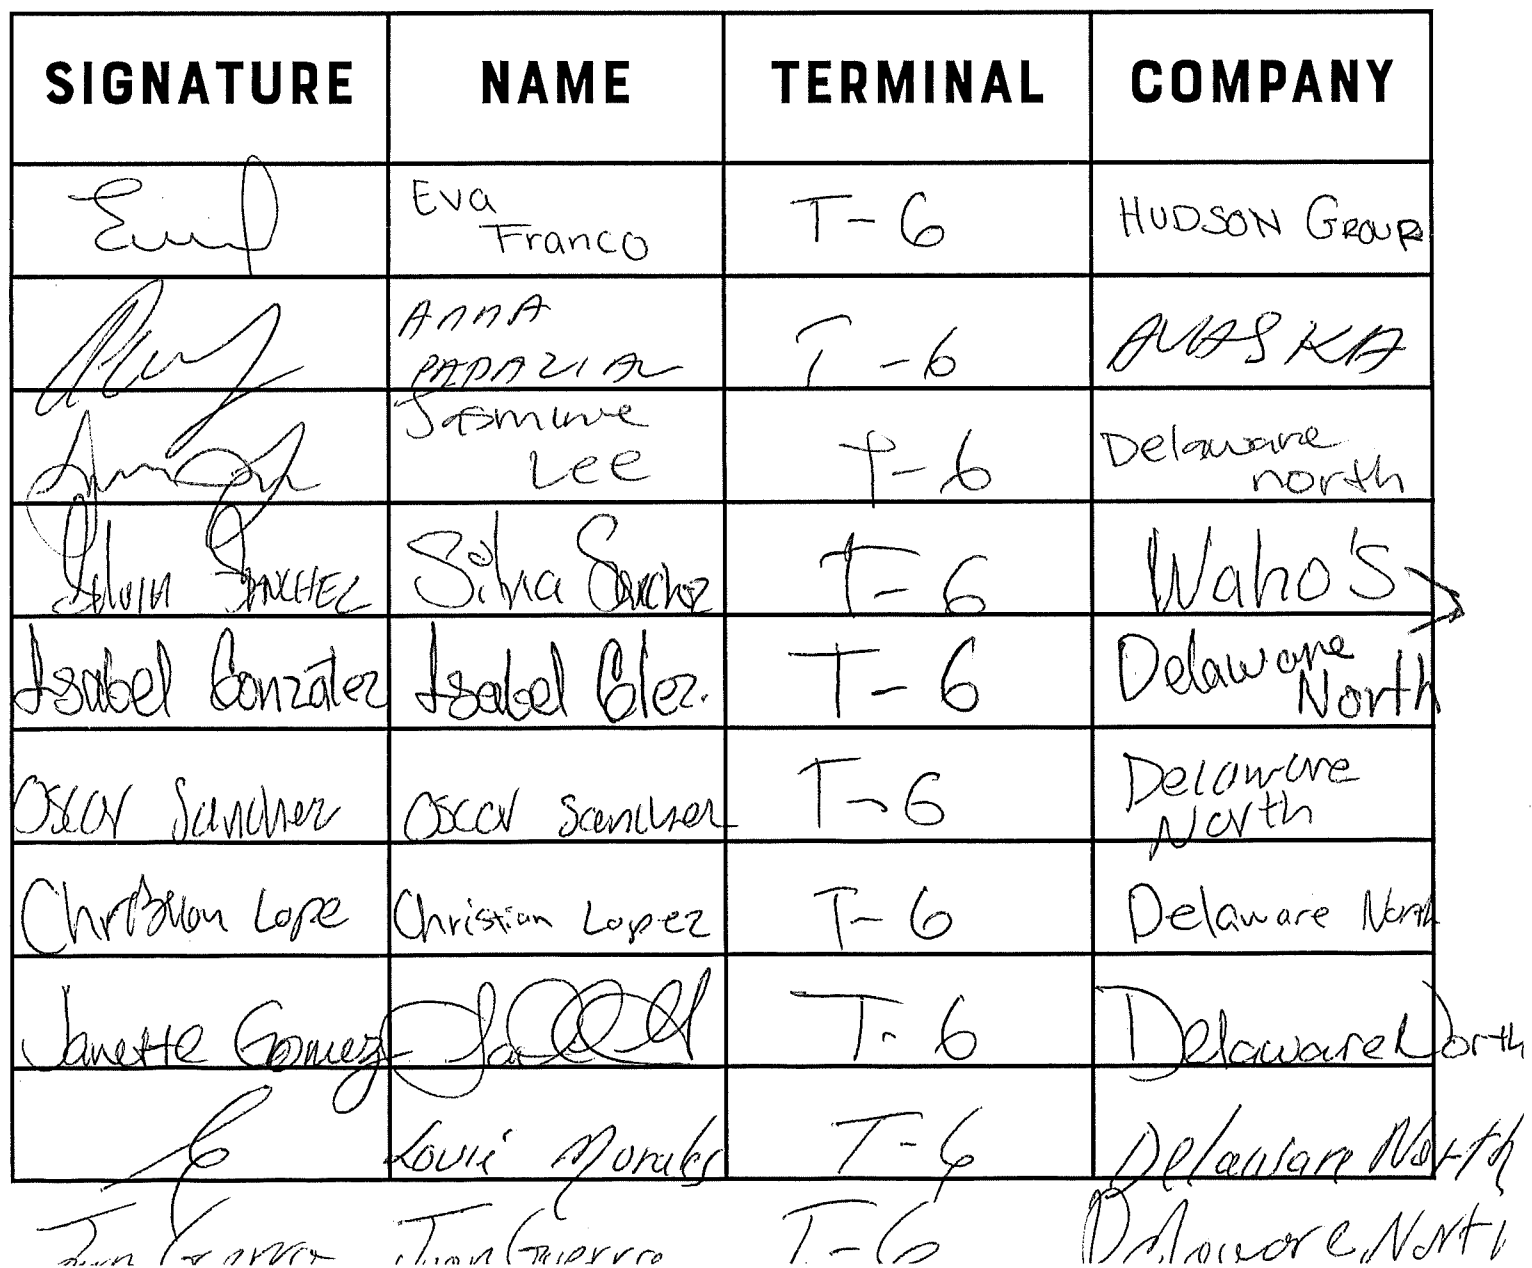 SIGNATURE NAME TERMINAL COMPANY
Eva
Franco T-6 HUDSON GROUP
ANNA
T-6 ALASKA
Jasmine
Lee T-6 Delaware
north
Silvia SANCHEZ Silvia Sanchez T-6 Waho's
Isabel González Isabel Glez. T-6 Delaware
North
Oscar Sanchez Oscar Sanchez T-6 Delaware
North
Christian Lope Christian Lopez T-6 Delaware North
Janette Gomez T-6 Delaware North
Louie Morales T-6 Delaware North
Juan Guerra Juan Guerra T-6 Delaware North